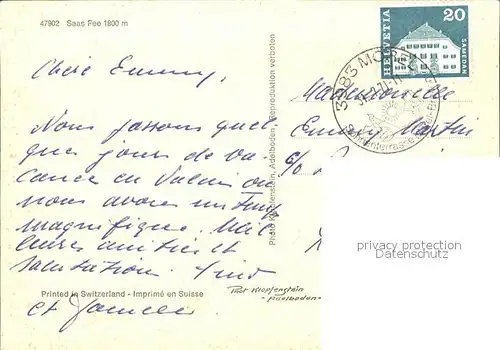 47902 Saas Fee 1800 m
Chère Emmy,
Nous passons quel-
ques jours de va-
cance en Valais ou
nous avons un temps
magnifique. Meil-
leures amitiés et
salutation.
et famille
Printed in Switzerland - Imprimé en Suisse
Photo Klopfenstein, Adelboden, Reproduktion verboten
Phot. Klopfenstein
- Adelboden -
HELVETIA 20
SAMEDAN
3983 MÖREL
Sonnenterrasse
Mademoiselle
Emmy
c/o
privacy protection
Datenschutz